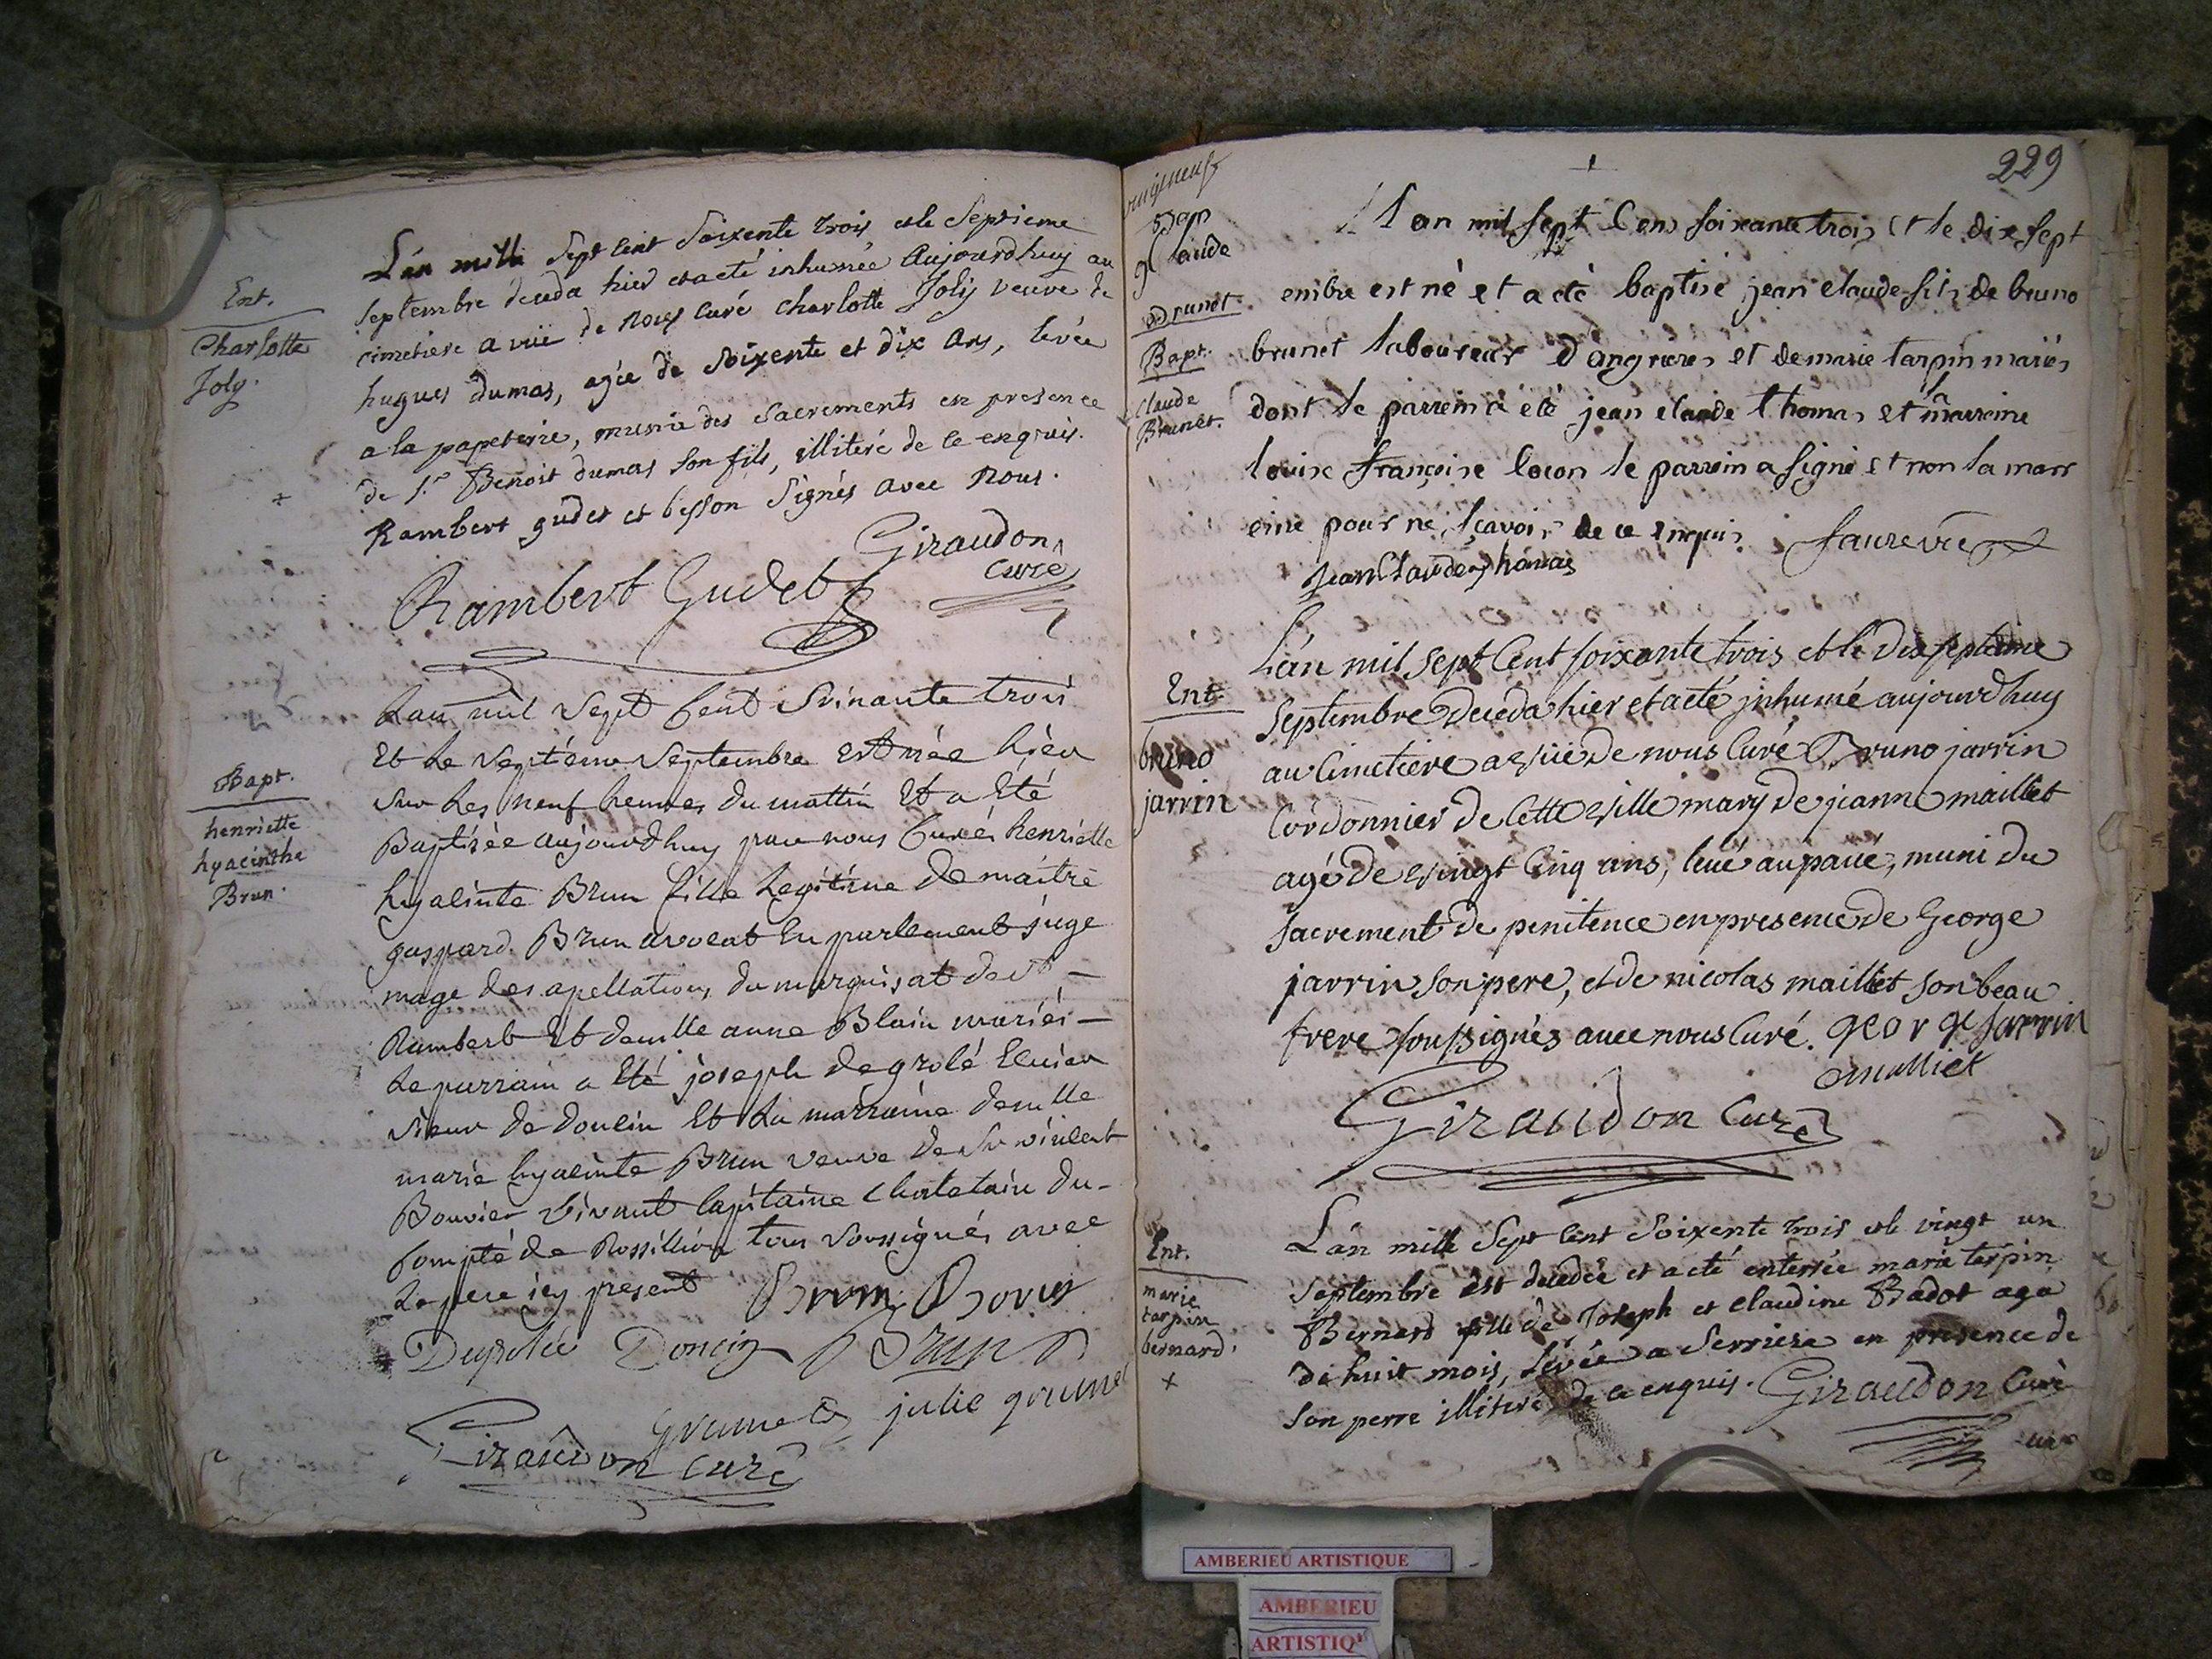 Ent.
Charlotte
Joly.
L'an mille Sept Cent Soixente trois et le Septieme
Septembre deceda hier et a eté inhumée Aujourdhuy au
cimetiere a vüe de nous Curé Charlotte Joly veuve de
hugues dumas, agée de Soixente et dix Ans, levée
a la papeterie, munie des Sacrements en presence
de Sr Benoit dumas son fils, illiteré de ce enquis.
Rambert gudet et besson Signés avec Nous.
Giraudon
Curé
Rambert Gudet
Bapt.
henriette
hyacinthe
Brun.
Lan mil Sept Cent Soixante trois
Et Le Septieme Septembre est née hier
Sur Les neuf heures du mattin Et a Eté
Baptisée aujourdhuy par nous Curé henriette
hyacinte Brun fille Legitime De maitre
gaspard Brun avocat En parlement juge
mage des apellations du marquisat de St
Rambert Et demlle anne Blain mariés
Le parrain a Eté joseph de grolé Ecuier
Sieur de doncin Et La marraine demlle
marie hyacinte Brun veuve de Sr vincent
Bouvier vivant Capitaine Chatelain du
Compté de Rossillion tous Soussignés avec
Le pere icy present Brun Bovier
Degrolée Doncin Brun
Grumet julie grumet
Giraudon curé
229
Bap
Claude
Brunet
Bapt.
Claude
Brunet.
L an mil sept Cens soixante trois et le dix sept
embre est né et a eté baptisé jean claude fils de bruno
brunet laboureur d'angrieres et de marie tarpin mariés
dont le parrein a été jean claude thomas et la marraine
louise françoise locon le parrein a signé et non la marr
eine pour ne sçavoir de ce enquis. faure vic
jean Claude thomas
Ent.
bruno
jarrin
L'an mil sept Cent soixante trois et le dix septieme
Septembre deceda hier et a eté jnhumé aujourdhuy
au Cimetiere a vüe de nous Curé Bruno jarrin
Cordonnier de Cette ville mary de jeanne maillet
agé de vingt Cinq ans, levé au pavé, muni du
Sacrement de penitence en presence de George
jarrin son pere, et de nicolas maillet son beau
frere soussignés avec nous Curé. george jarrin
Giraudon Curé
Ent.
marie
tarpin
bernard.
L'an mille Sept Cent Soixente trois et le vingt un
Septembre est decedée et a eté enterrée marie terpin
Bernard fille de Joseph et claudine Badot age
de huit mois, levée a Serriere en presence de
son perre illiteré de ce enquis. Giraudon Curé
AMBERIEU ARTISTIQUE
AMBERIEU
ARTISTIQ